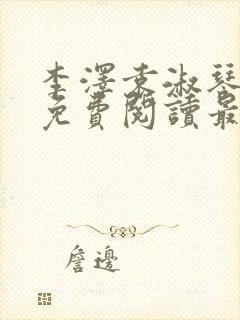 李澤袁淑琴
免費閱讀最
詹邊